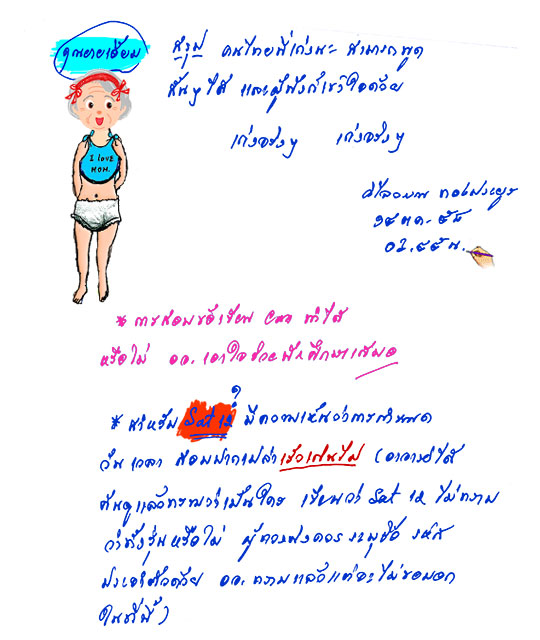 คุณยายเอี่ยม
สรุป คนไทยนี่เก่งนะ สามารถพูด
สั้นๆ ได้ และผู้ฟังก็เข้าใจด้วย
เก่งจริงๆ เก่งจริงๆ
I love
MOM.
วิไลวรรณ
๑๕ ตค. ๕๘
02.55 น.
* การสอบข้อเขียน ทำได้
หรือไม่ อจ. เอาใจช่วยนักศึกษาเสมอ
* สำหรับ Sat 12 มีความเห็นว่าการกำหนด
วัน เวลา สอบปากเปล่าเร็วเกินไป (อาจารย์ได้
ค้นดูแล้วทราบว่าเป็นใคร เขียนว่า Sat 12 ไม่ทราบ
ว่าทั้งรุ่นหรือไม่ ผู้ควรระบุชื่อ รหัส
ด้วย อจ. ทราบแล้วแต่จะไม่ขอบอก
ในที่นี้)